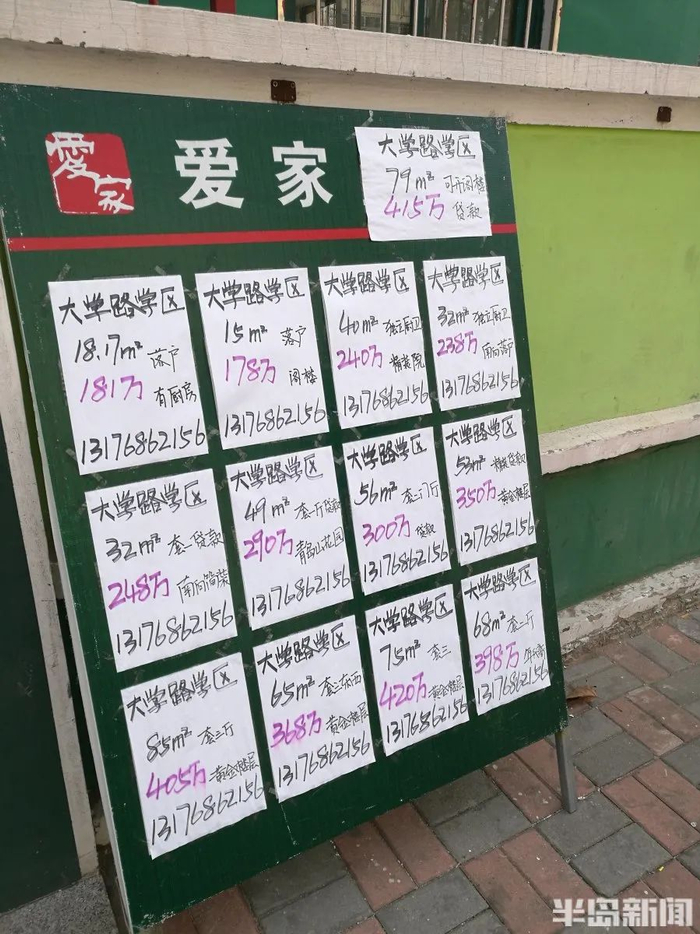 愛家
爱家
大学路学区
79m² 可开阁楼
415万 贷款
大学路学区
18.17m² 落户
181万 有厨房
13176862156
大学路学区
15m² 落户
178万 阁楼
13176862156
大学路学区
40m² 独立厨卫
240万 精装院
13176862156
大学路学区
32m² 独立厨卫
238万 南向落户
13176862156
大学路学区
32m² 套一贷款
248万 南向简装
13176862156
大学路学区
49m² 套一厅贷款
290万 青岛山花园
13176862156
大学路学区
56m² 套二厅
300万 贷款
13176862156
大学路学区
53m² 精装贷款
350万 黄金楼层
13176862156
大学路学区
85m² 套三厅
405万 黄金楼层
13176862156
大学路学区
65m² 套三东西
368万 黄金楼层
13176862156
大学路学区
75m² 套三
420万 黄金楼层
13176862156
大学路学区
68m² 套二厅
398万
13176862156
半岛新闻